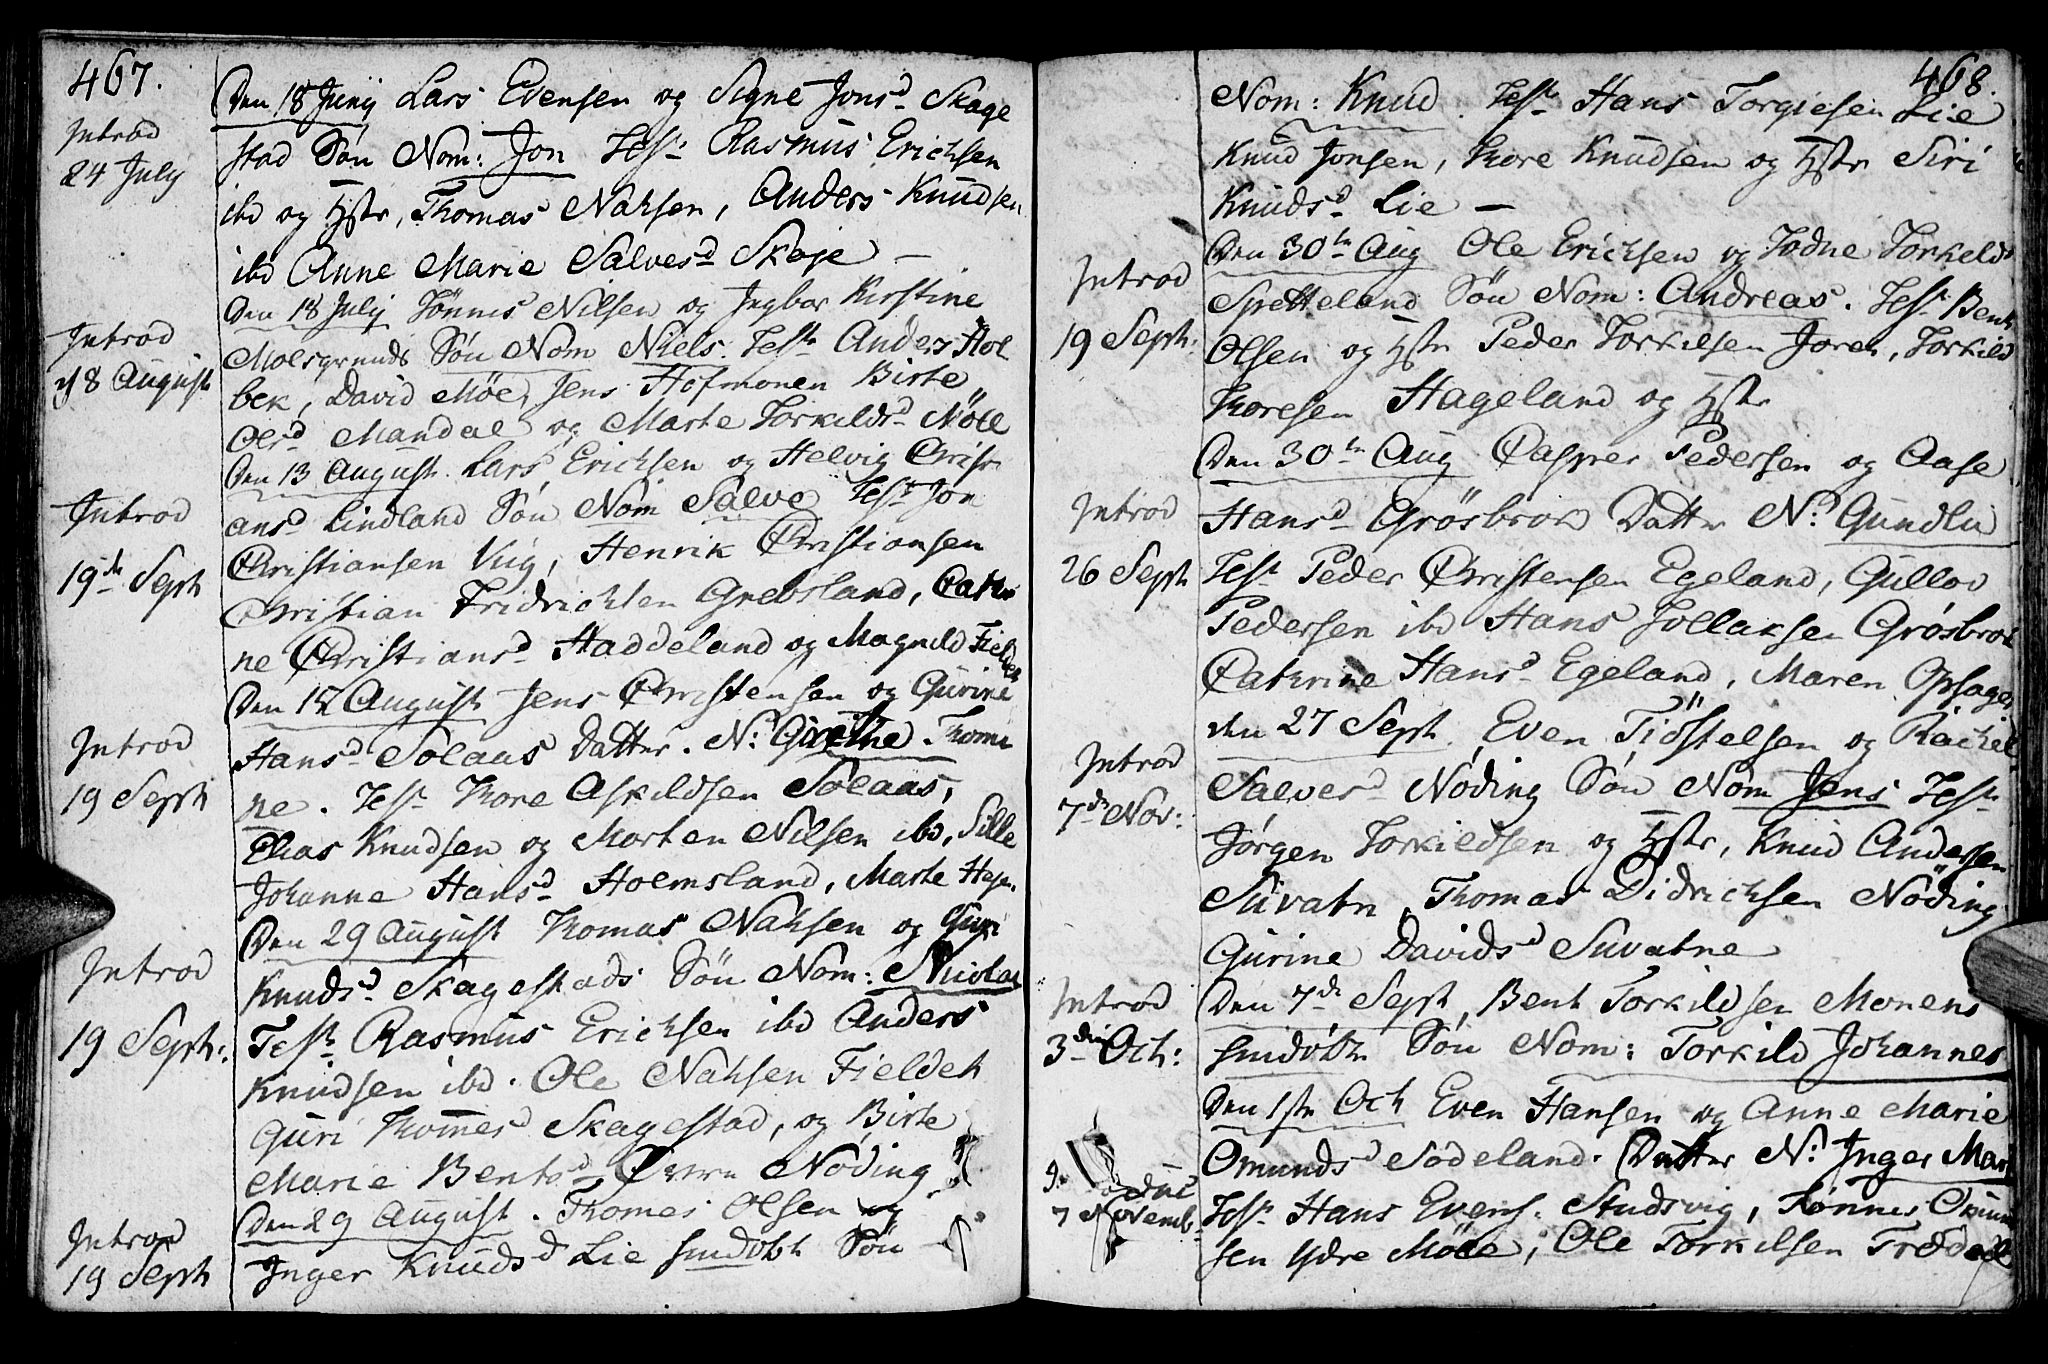 467.
Introd
24 July
Den 18 Junij Lars Evensen og Signe Jonsd Skage
stad Søn Nom: Jon Test: Rasmus Erichsen
ibd og Hstr, Thomas Nahsen, Anders Knudsen
ibd Anne Marie Salvesd Skøje —
Introd
d 8 August
Den 18 July Tønnes Nilsen og Ingbor Kirstine
Molsgrunds Søn Nom Niels. Test Anders Hol
bek, David Møe, Jens Hofmonen Birte
Olsd Mandal og Marte Torkildsd Nöll
Introd
19de Sept
Den 13 August Lars Erichsen og Helvig Christi
ansd Lindland Søn Nom Salve Test Jon
Christiansen Vug, Henrik Christiansen
Christian Fridrichsen Grebsland, Cathri
ne Christiansd Haddeland og Magnild
Introd
19 Sept
Den August Jens Christensen og Gurine
Hansd Solaas Datter. N: Grethe Thomi
ne. Test Thore Askildsen Solaas,
Elias Knudsen og Morten Nilsen ibd, Sille
Johanne Hansd Holmsland, Marte
Introd
19 Sept:
Den 29 August Thomas Nahsen og Guri
Knudsd Skagestads Søn Nom: Nicolai
Test Rasmus Erichsen ibd Anders
Knudsen ibd. Ole Nahsen Fieldet
Guri Thommesd Skagestad, og Birte
Marie Bentsd Øvre Nøding
Introd
19 Sept
Den 29 August. Thomes Olsen og
Inger Knudsd Lie Søn
468.
Nom: Knud. Test Hans Torgiesen Lie
Knud Jonsen, Thore Knudsen og Hstr Siri
Knudsd Lie —
Introd
19 Sept:
Den 30te Aug Ole Erichsen og Jodne Torkelds
Spetteland Søn Nom: Andreas. Test Bent
Olsen og Hstr Peder Torkilsen Joren, Torkild
Thoresen Hageland og Hstr
Introd
26 Sept
Den 30te Aug Casper Pedersen og Aase
Hansd Grösbrok Datter N: Gundlu
Test Peder Christensen Egeland, Gullov
Pedersen ibd Hans Jollaksen Grösbrok
Catrine Hansd Egeland, Maren
Introd
7de Nov:
den 27 Sept Even Tiöstelsen og Rachel
Salvesd Nøding Søn Nom Jens Test
Jørgen Torkildsen og Hstr, Knud Andersen
Suvatn, Thomas Didrichsen Nöding
Gurine Davidsd Suvatne
Introd
3die Oct:
Den 7de Sept, Bent Torkildsen Monens
Søn Nom: Torkild Johannes
7 Novemb
Den 1ste Oct Even Hansen og Anne Marie
Omundsd Södeland. Datter N: Inger Mari
Test Hans Evens: Studsvig, Tønnes Omun
sen Ydre Möll, Ole Torkilsen